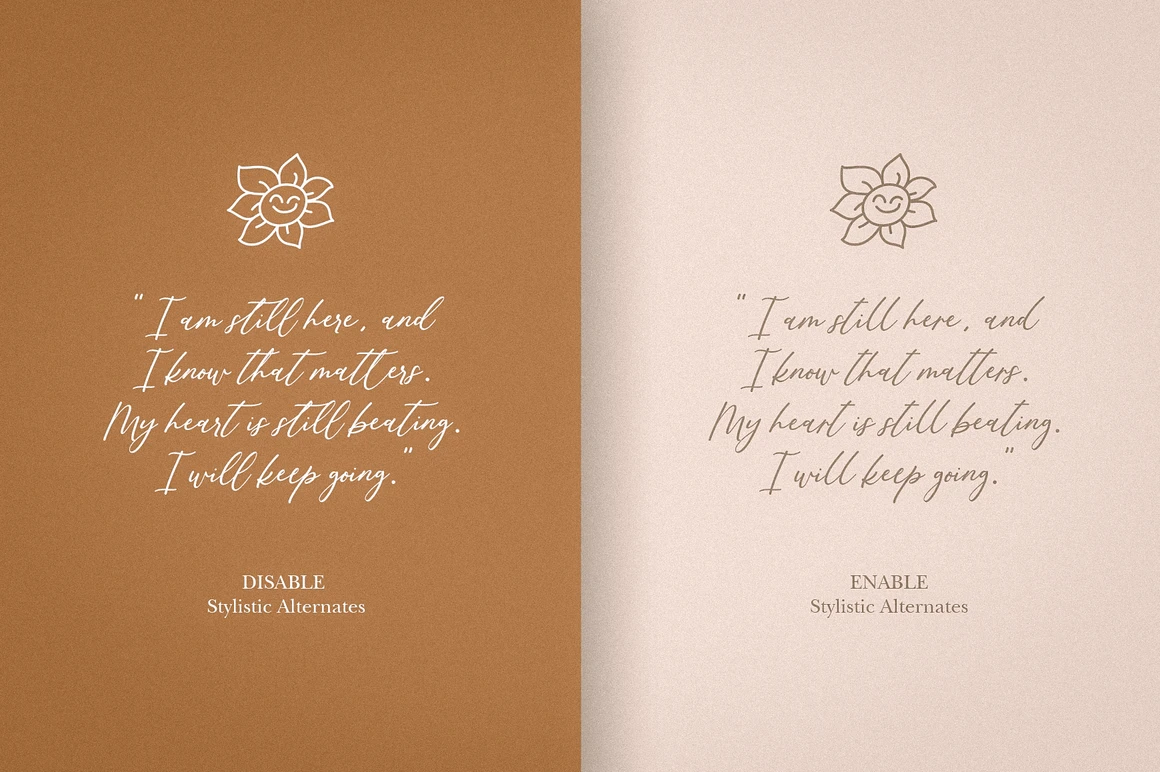 " I am still here, and
I know that matters.
My heart is still beating.
I will keep going."
DISABLE
Stylistic Alternates
" I am still here, and
I know that matters.
My heart is still beating.
I will keep going."
ENABLE
Stylistic Alternates